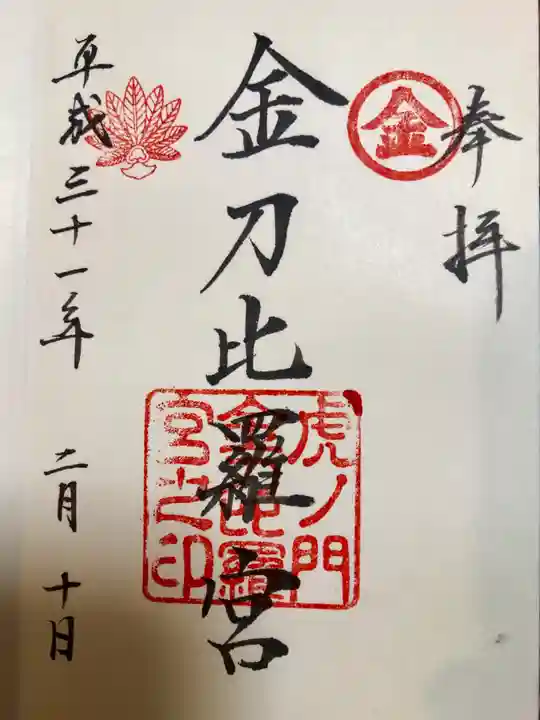 奉拝
金
金刀比羅宮
虎ノ門
金比羅
宮之印
平成三十一年 二月 十日